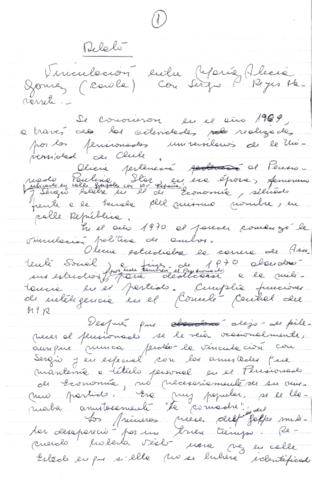 1
Relato
Vinculación entre María Alicia
Gomez (Carola) con Sergio Reyes Na-
varrete..
Se conocieron en el año 1969,
a través de las actividades realizadas
por los pensionados universitarios de la Uni-
versidad de Chile.
Alicia pertenecía al Pensio-
nado Paulina Starr, en esa época, femenino
y Sergio estaba en el de Economía, situado
frente a la escuela del mismo nombre, en
calle República.
En el año 1970 al parecer comenzó la
vinculación política de ambos.
Alicia estudiaba la carrera de Asis-
tente Social, a fines de 1970 abandonó
sus estudios para dedicarse a la mili-
tancia en el partido. Cumplía funciones
de inteligencia en el Comité Central del
MIR
Después que dejó de perte-
necer al pensionado se le veía ocasionalmente,
aunque nunca perdió la vinculación con
Sergio y en especial con las amistades que
mantenía a título personal en el Pensionado
de Economía, no necesariamente de su mis-
mo partido. Era muy popular, se le lla-
maba amistosamente "la comadre".
Los primeros meses del golpe mili-
tar desapareció por un buen tiempo. Re-
cuerdo haberla visto una vez en calle
Estado en que si ella no se hubiera identificado